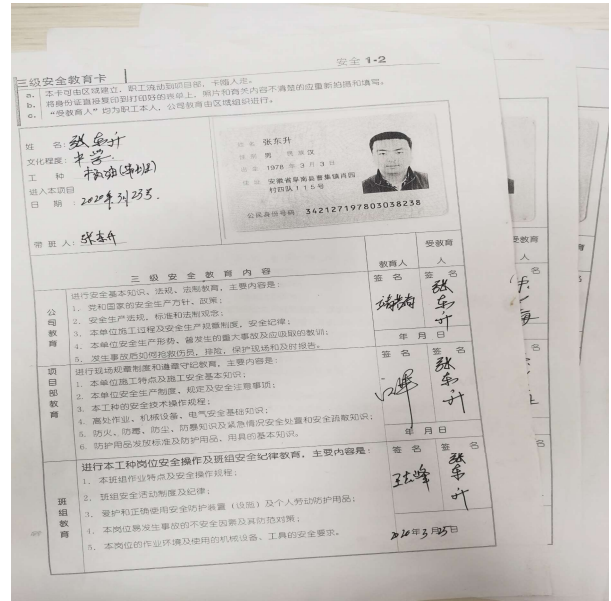 安全 1-2
三级安全教育卡
a. 本卡可由区域建立，职工流动到项目部，卡随人走。
b. 将身份证直接复印到打印好的表单上，照片和有关内容不清楚的应重新拍摄和填写。
c. “受教育人”均为职工本人，公司教育由区域组织进行。
姓 名：张东升
文化程度：中学
工 种
进入本项目
日 期：2020年3月23号.
带班人：张东升
姓名 张东升
性别 男 民族 汉
出生 1978 年 3 月 3 日
住址 安徽省阜南县曹集镇肖园
村四队115号
公民身份号码 342127197803038238
三 级 安 全 教 育 内 容
教育人
受教育
人
公司教育
进行安全基本知识、法规、法制教育，主要内容是：
1. 党和国家的安全生产方针、政策；
2. 安全生产法规、标准和法制观念；
3. 本单位施工过程及安全生产规章制度，安全纪律；
4. 本单位安全生产形势，曾发生的重大事故及应吸取的教训；
5. 发生事故后如何抢救伤员，排险，保护现场和及时报告。
签 名
签 名
张东升
年 月 日
项目部教育
进行现场规章制度和遵章守纪教育，主要内容是：
1. 本单位施工特点及施工安全基本知识；
2. 本单位安全生产制度，规定及安全注意事项；
3. 本工种的安全技术操作规程；
4. 高处作业，机械设备，电气安全基础知识；
5. 防火、防毒，防尘，防暴知识及紧急情况安全处置和安全疏散知识；
6. 防护用品发放标准及防护用品，用具的基本知识。
签 名
签 名
张东升
年 月 日
班组教育
进行本工种岗位安全操作及班组安全纪律教育，主要内容是：
1. 本班组作业特点及安全操作规程；
2. 班组安全活动制度及纪律；
3. 爱护和正确使用安全防护装置（设施）及个人劳动防护用品；
4. 本岗位易发生事故的不安全因素及其防范对策；
5. 本岗位的作业环境及使用的机械设备、工具的安全要求。
签 名
签 名
张东升
2020年3月23日
受教育
人
名